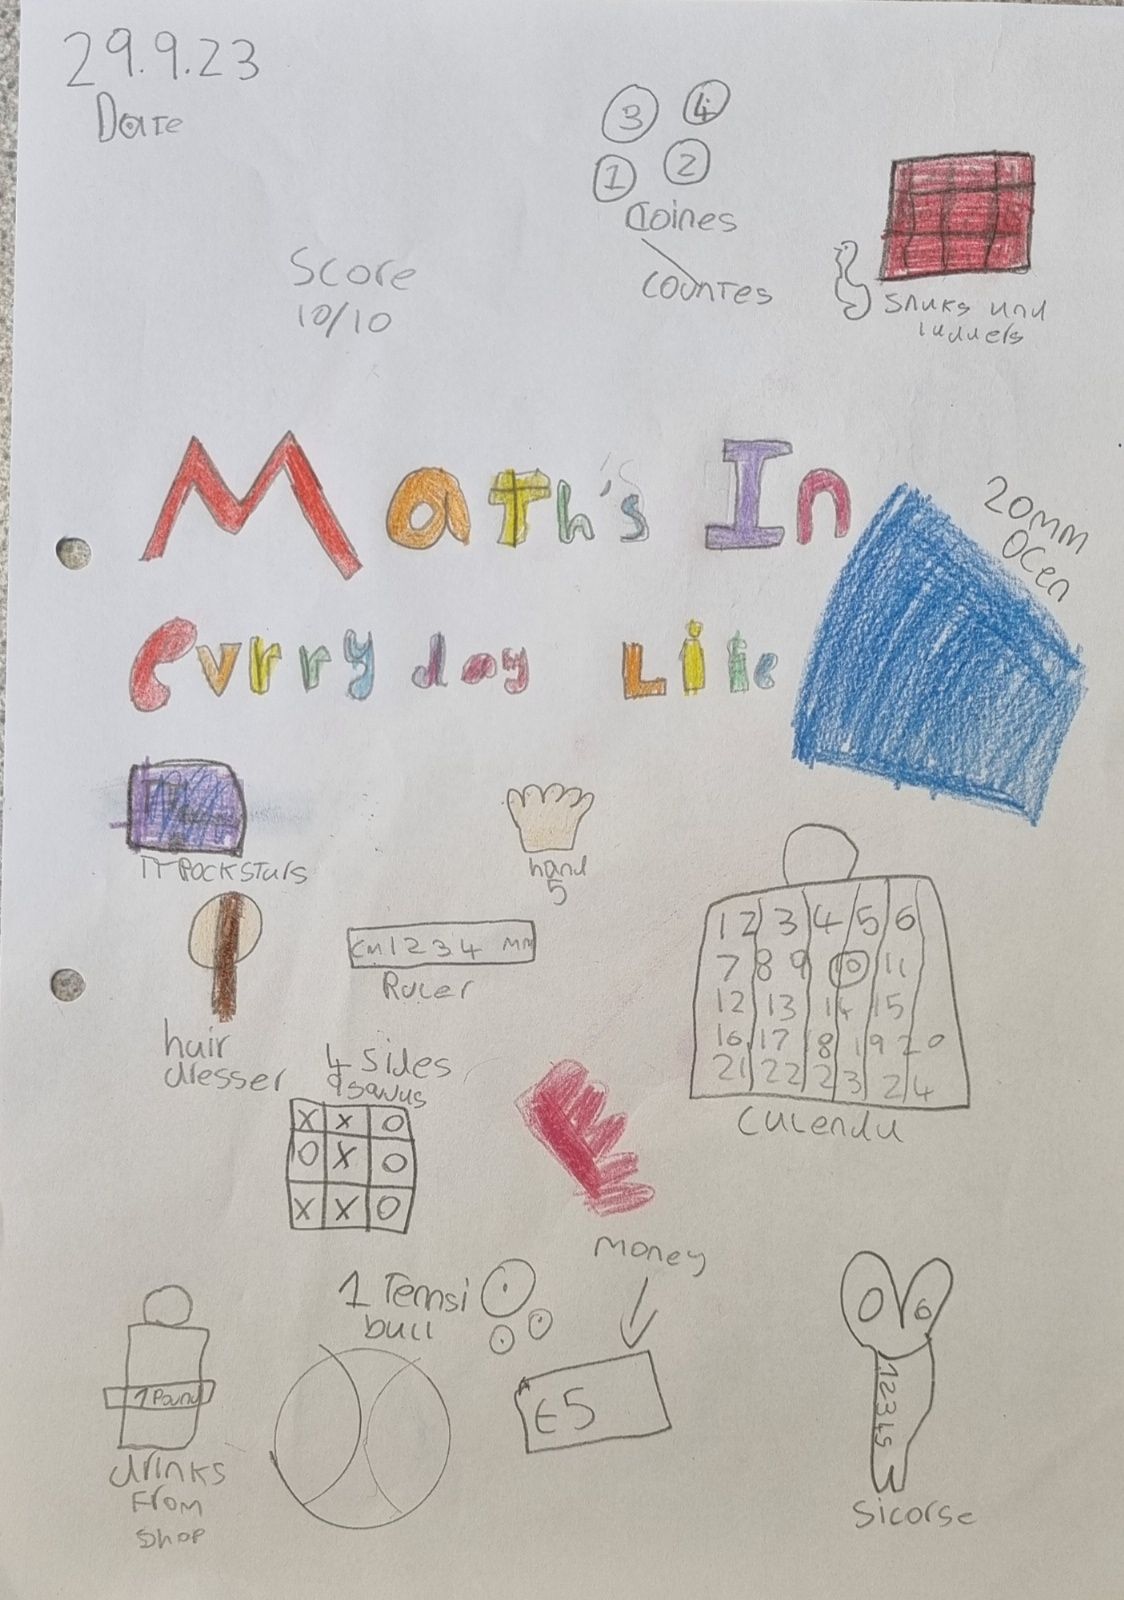 29.9.23
Date
3 4
1 2
Coines
Countes
Snuks und
luduels
Score
10/10
Math's In
Evrry day Life
20mm
Ocen
TT Rockstars
hand
5
cm 1 2 3 4 mm
Ruler
hair
dresser
1 2 3 4 5 6
7 8 9 10 11
12 13 14 15
16 17 18 19 20
21 22 23 24
Culendu
4 sides
9 sqwus
X X O
O X O
X X O
Money
£5
1 Tennsi
bull
1 Pound
drinks
From
shop
0 6
1 2 3 4 5
Sicorse